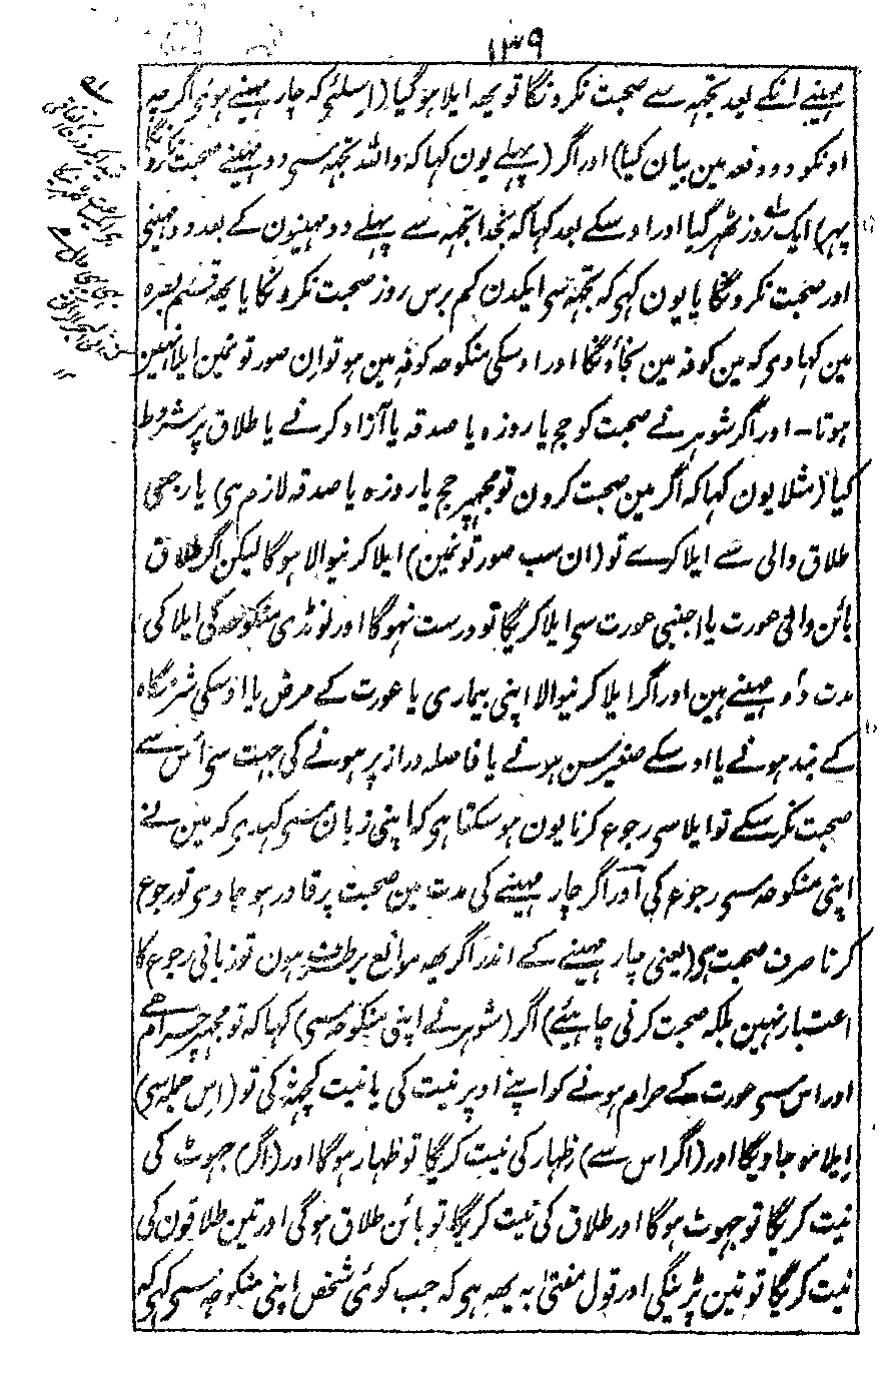 ۱۳۹
مہینے انکے بعد تجھہ سے صحبت نکرونگا تو یہہ ایلا ہوگیا (اسلئے کہ چار مہینے ہوئی اگرچہ
اونکو دو دفعہ مین بیان کیا) اور اگر (پہلے یون کہا کہ واللہ تجھہ سی دو مہینے صحبت نکرونگا
پہر) ایک روز ٹھر گیا اور اوسکے بعد کہا کہ بخدا تجھہ سے پہلے دو مہینون کے بعد دو مہینی
اور صحبت نکرونگا یا یون کہی کہ تجھہ سی ایکدن کم برس روز صحبت نکرونگا یا یہہ قسم بصرہ
مین کہاوی کہ مین کوفہ مین نجاؤنگا اور اوسکی منکوحہ کوفہ مین ہو تو اِن صورتونمین ایلا نہین
ہوتا۔ اور اگر شوہر نے صحبت کو حج یا روزہ یا صدقہ یا آزاد کرنے یا طلاق پر مشروط
کیا (مثلا یون کہا کہ اگر مین صحبت کرون تو مجھپر حج یا روزہ یا صدقہ لازم ہی) یا رجعی
طلاق والی سے ایلا کرے تو (ان سب صورتونمین) ایلا کرنیوالا ہوگا لیکن اگر طلاق
بائن والی عورت یا اجنبی عورت سی ایلا کریگا تو درست نہوگا اور لونڈی منکوحہ کی ایلا کی
مدت دو مہینے ہین اور اگر ایلا کرنیوالا اپنی بیماری یا عورت کے مرض یا اوسکی شرمگاہ
کے بند ہونے یا اوسکے صغیر سن ہونے یا فاصلہ دراز پر ہونے کی جہت سی اُس سے
صحبت نکر سکے تو ایلا سی رجوع کرنا یون ہو سکتا ہی کہ اپنی زبان سی کہدی کہ مین نے
اپنی منکوحہ سی رجوع کی اور اگر چار مہینے کی مدت مین صحبت پر قادر ہو جاوی تو رجوع
کرنا صرف صحبت ہی (یعنی چار مہینے کے اندر اگر یہہ موانع برطرف ہون تو زبانی رجوع کا
اعتبار نہین بلکہ صحبت کرنی چاہیئے) اگر (شوہر نے اپنی منکوحہ سی) کہا کہ تو مجھپر حرام ہے
اور اس سی عورت کے حرام ہونے کو اپنے اوپر نیت کی یا نیت کچھہ نہ کی تو (اس جملہ سی)
ایلا ہو جاویگا اور (اگر اس سے) ظہار کی نیت کریگا تو ظہار ہوگا اور (اگر) جہوٹ کی
نیت کریگا تو جہوٹ ہوگا اور طلاق کی نیت کریگا تو بائن طلاق ہوگی اور تین طلاقون کی
نیت کریگا تو تین پڑینگی اور قول مفتیٰ بہ یہہ ہی کہ جب کوئی شخص اپنی منکوحہ سی کہی کہ